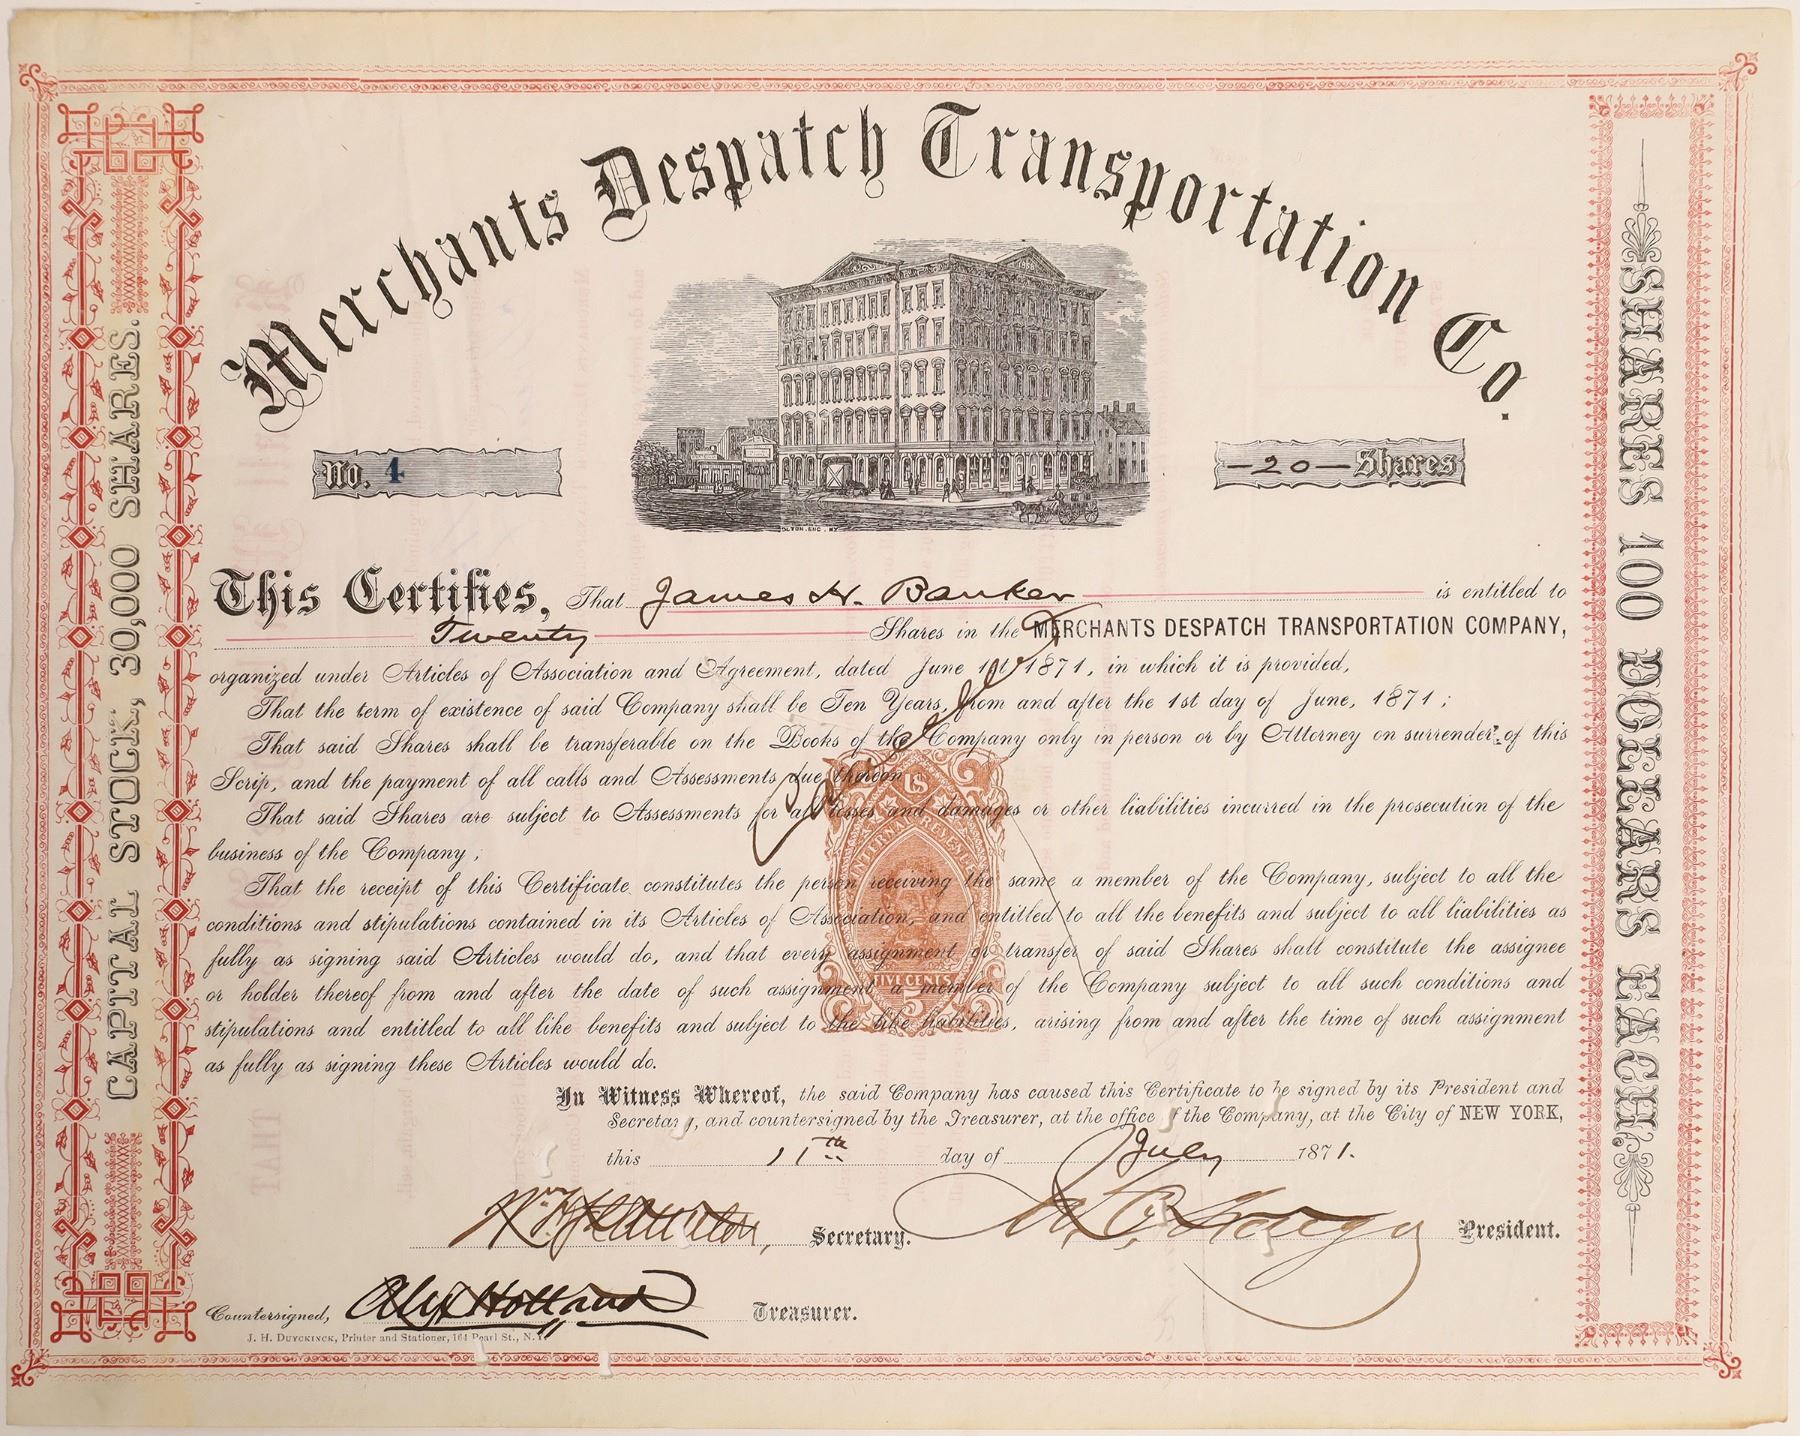 Merchants Despatch Transportation Co.
No. 4
—20— Shares
CAPITAL STOCK, 30,000 SHARES.
SHARES 100 DOLLARS EACH.
This Certifies, That James H. Banker is entitled to
Twenty Shares in the MERCHANTS DESPATCH TRANSPORTATION COMPANY,
organized under Articles of Association and Agreement, dated June 1st 1871, in which it is provided,
That the term of existence of said Company shall be Ten Years, from and after the 1st day of June, 1871;
That said Shares shall be transferable on the Books of the Company only in person or by Attorney on surrender of this
Scrip, and the payment of all calls and Assessments due thereon
That said Shares are subject to Assessments for all losses and damages or other liabilities incurred in the prosecution of the
business of the Company;
That the receipt of this Certificate constitutes the person receiving the same a member of the Company, subject to all the
conditions and stipulations contained in its Articles of Association, and entitled to all the benefits and subject to all liabilities as
fully as signing said Articles would do, and that every assignment or transfer of said Shares shall constitute the assignee
or holder thereof from and after the date of such assignment a member of the Company subject to all such conditions and
stipulations and entitled to all like benefits and subject to the like liabilities, arising from and after the time of such assignment
as fully as signing these Articles would do.
US
INTERNAL REVENUE
FIVE CENTS
5
Cancelled
In Witness Whereof, the said Company has caused this Certificate to be signed by its President and
Secretary, and countersigned by the Treasurer, at the office of the Company, at the City of NEW YORK,
this 11th day of July 1871.
Secretary.
President.
Countersigned, Alex Holland Treasurer.
J. H. DUYCKINCK, Printer and Stationer, 164 Pearl St., N.Y.